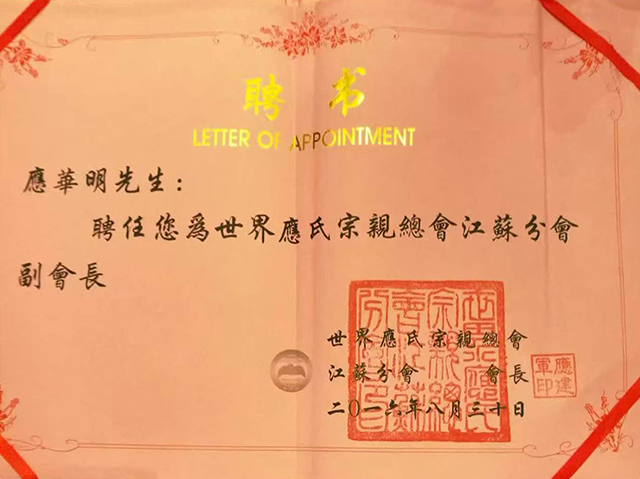 聘 书
LETTER OF APPOINTMENT
應華明先生：
聘任您為世界應氏宗親總會江蘇分會
副會長
世界應氏宗親總會
江蘇分會 會長
二〇一六年八月三十日
應建
軍印